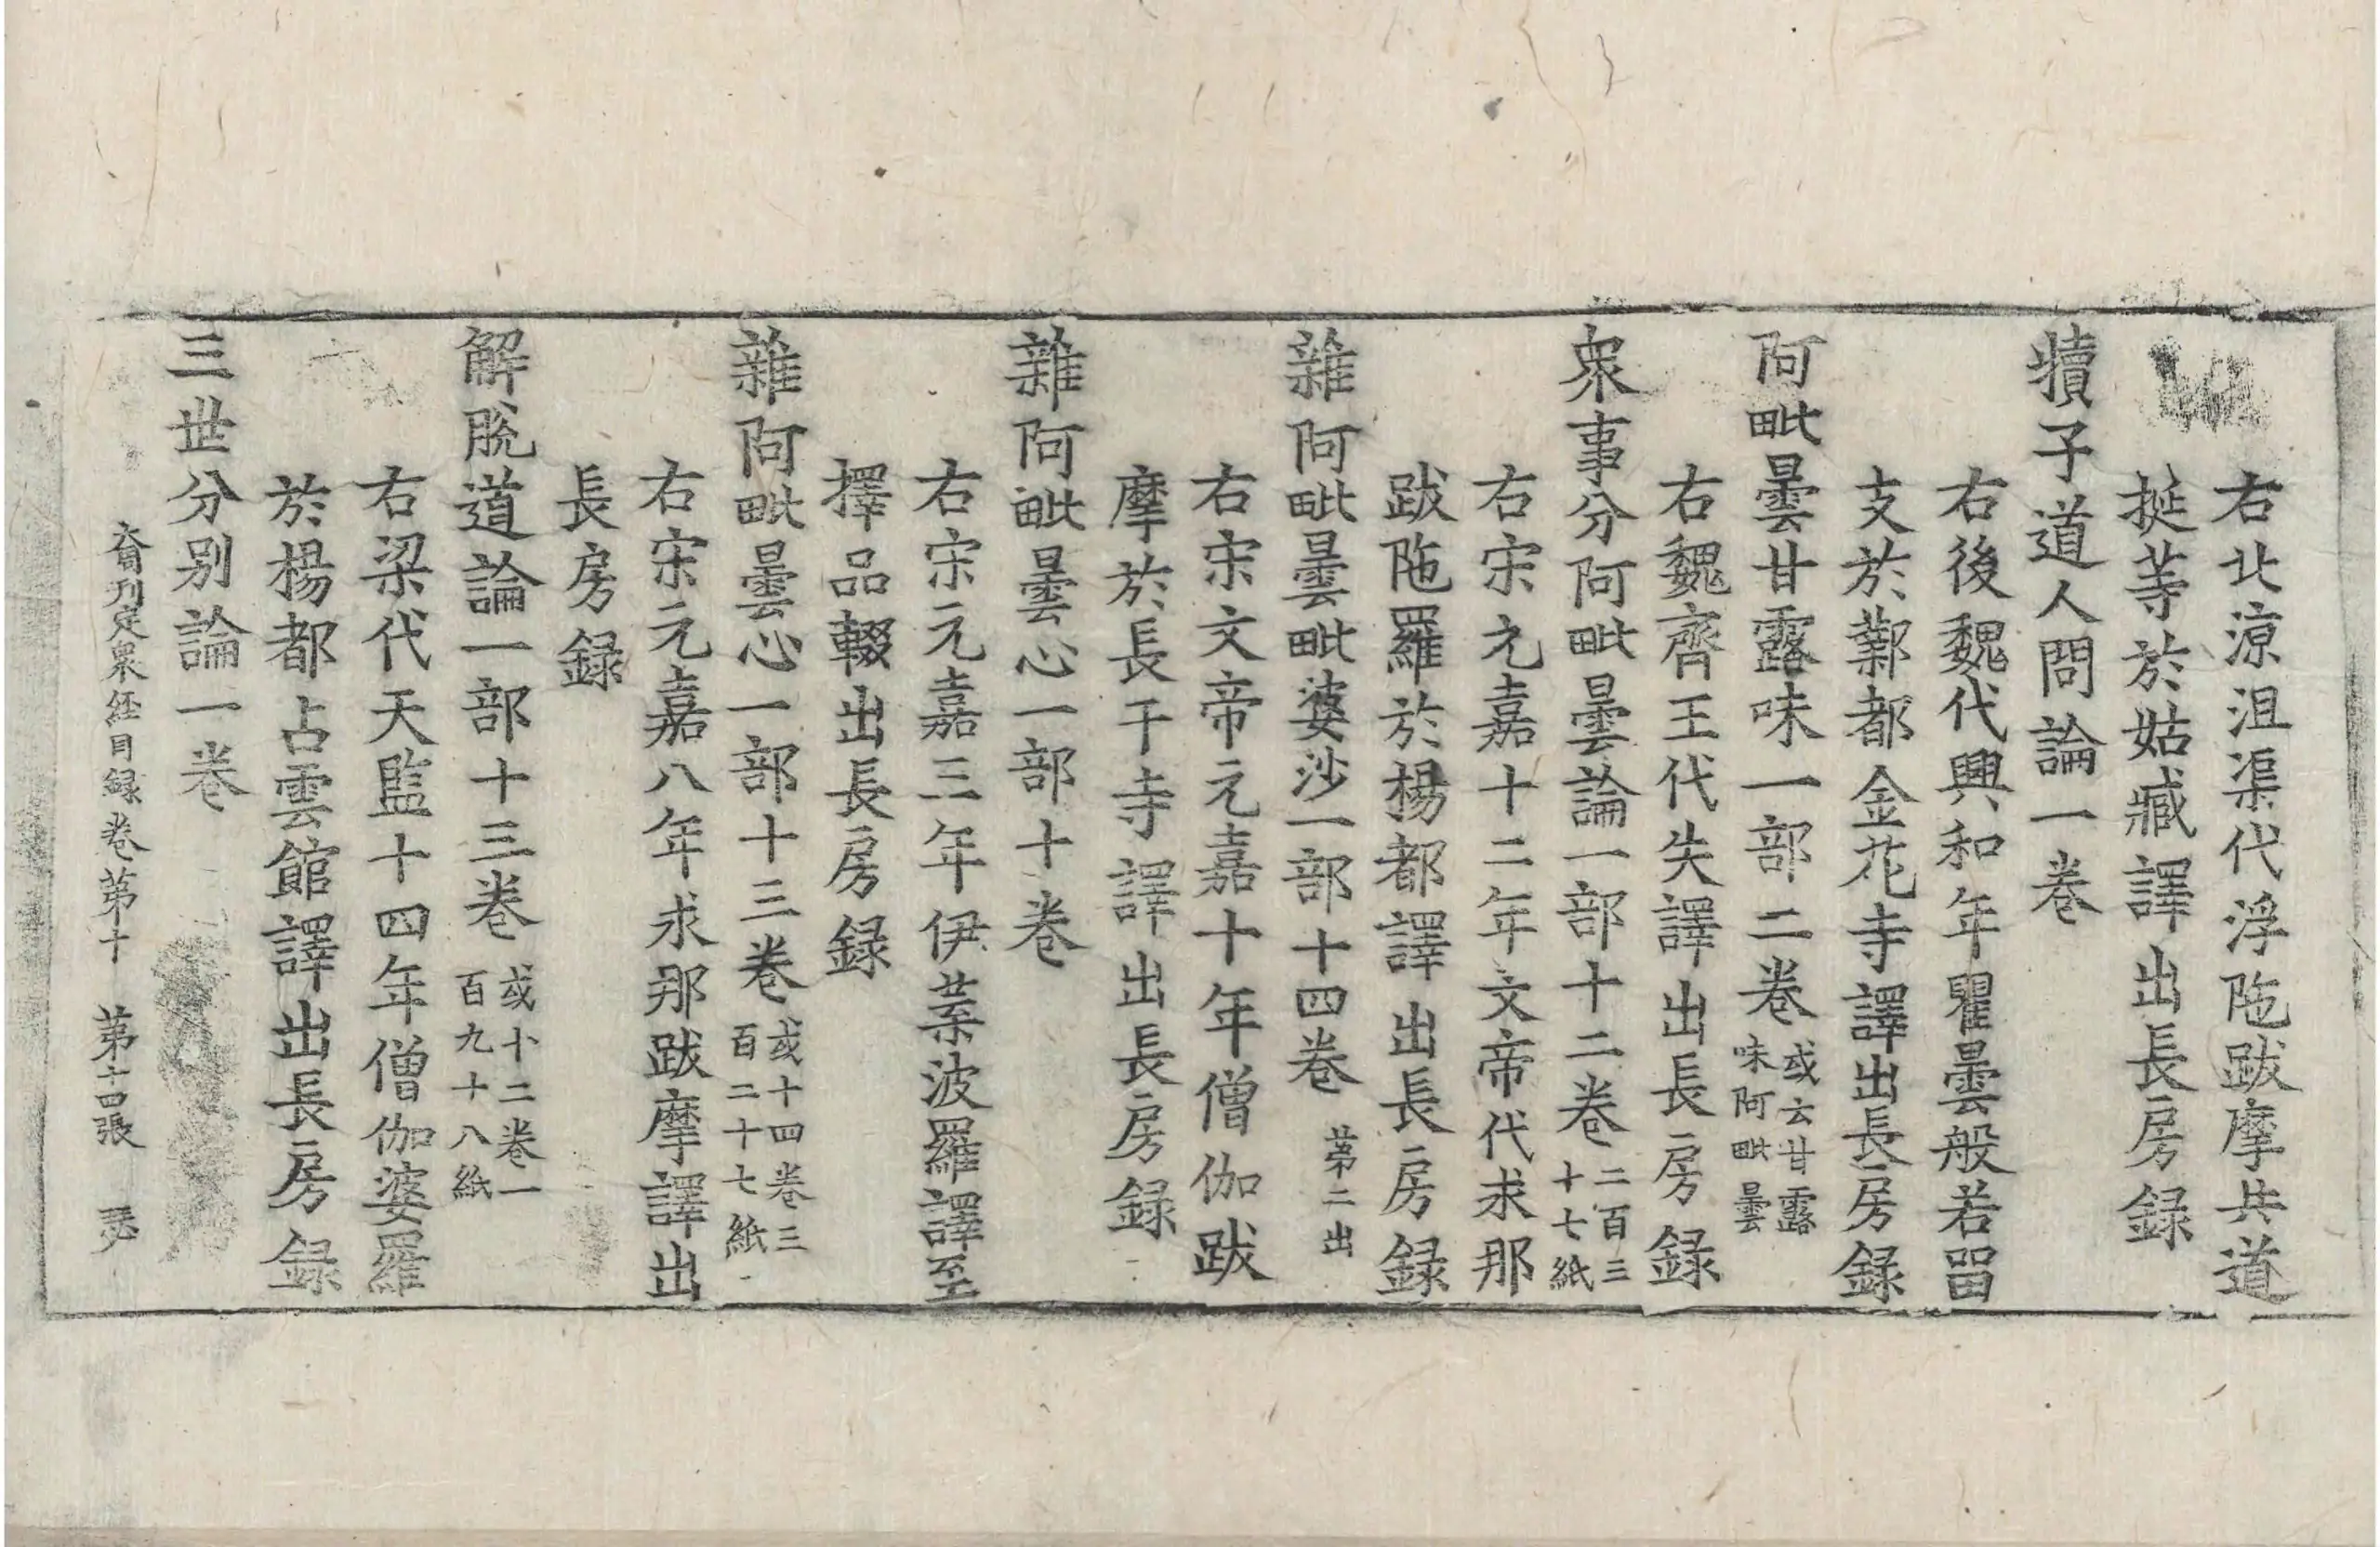 右北涼沮渠代浮陁跋摩共道
挻䓁於姑臧譯出長房録
犢子道人問論一卷
右後魏代興和年瞿曇般若留
支於鄴都金花寺譯出長房録
阿毗曇甘露味一部二卷 或云甘露味阿毗曇
右魏齊王代失譯出長房録
衆事分阿毗曇論一部十二卷 二百三十七紙
右宋元嘉十二年文帝代求那
跋陁羅於楊都譯出長房録
雜阿毗曇毗婆沙一部十四卷 苐二出
右宋文帝元嘉十年僧伽跋
摩於長干寺譯出長房録
雜阿毗曇心一部十卷
右宋元嘉三年伊葉波羅譯至
擇品輟出長房録
雜阿毗曇心一部十三卷 或十四卷三百二十七紙
右宋元嘉八年求那跋摩譯出
長房録
解脫道論一部十三卷 或十二卷一百九十八紙
右梁代天監十四年僧伽婆羅
於楊都占雲館譯出長房録
三世分別論一卷
刊定衆经目録卷苐十 苐十四張